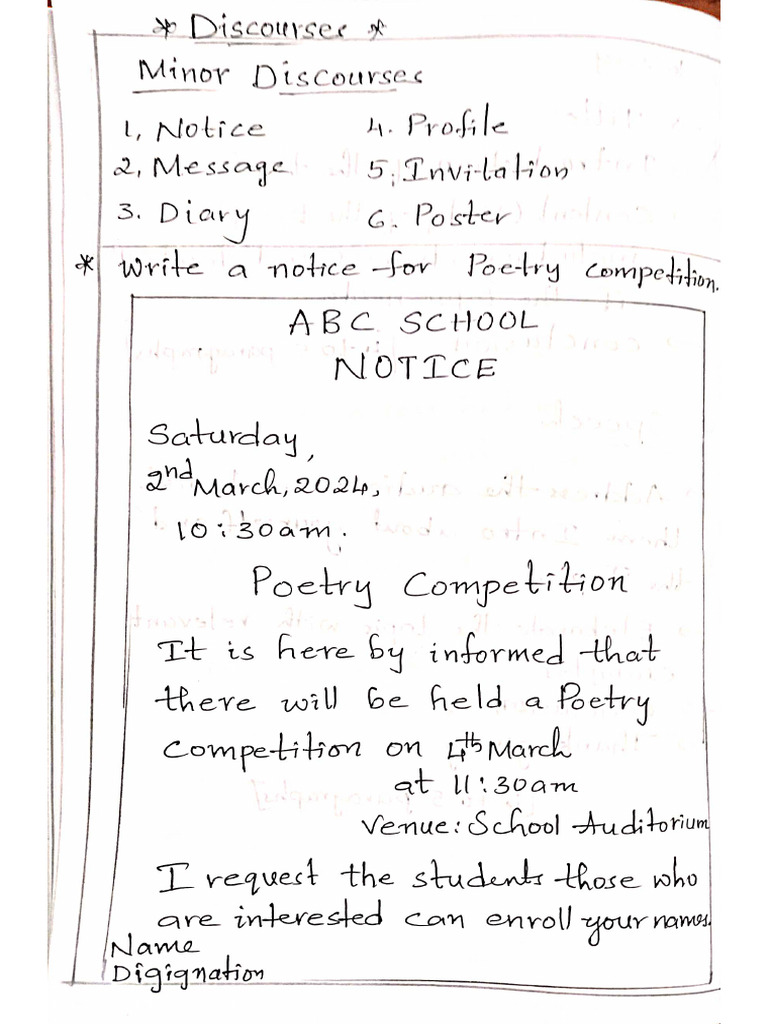 * Discourses *
Minor Discourses
1, Notice 4. Profile
2, Message 5. Invitation
3. Diary 6. Poster
* Write a notice for Poetry competition.
ABC SCHOOL
NOTICE
Saturday,
2nd March, 2024,
10:30am.
Poetry Competition
It is here by informed that
there will be held a Poetry
Competition on 4th March
at 11:30am
Venue: School Auditorium
I request the students those who
are interested can enroll your names.
Name
Digignation